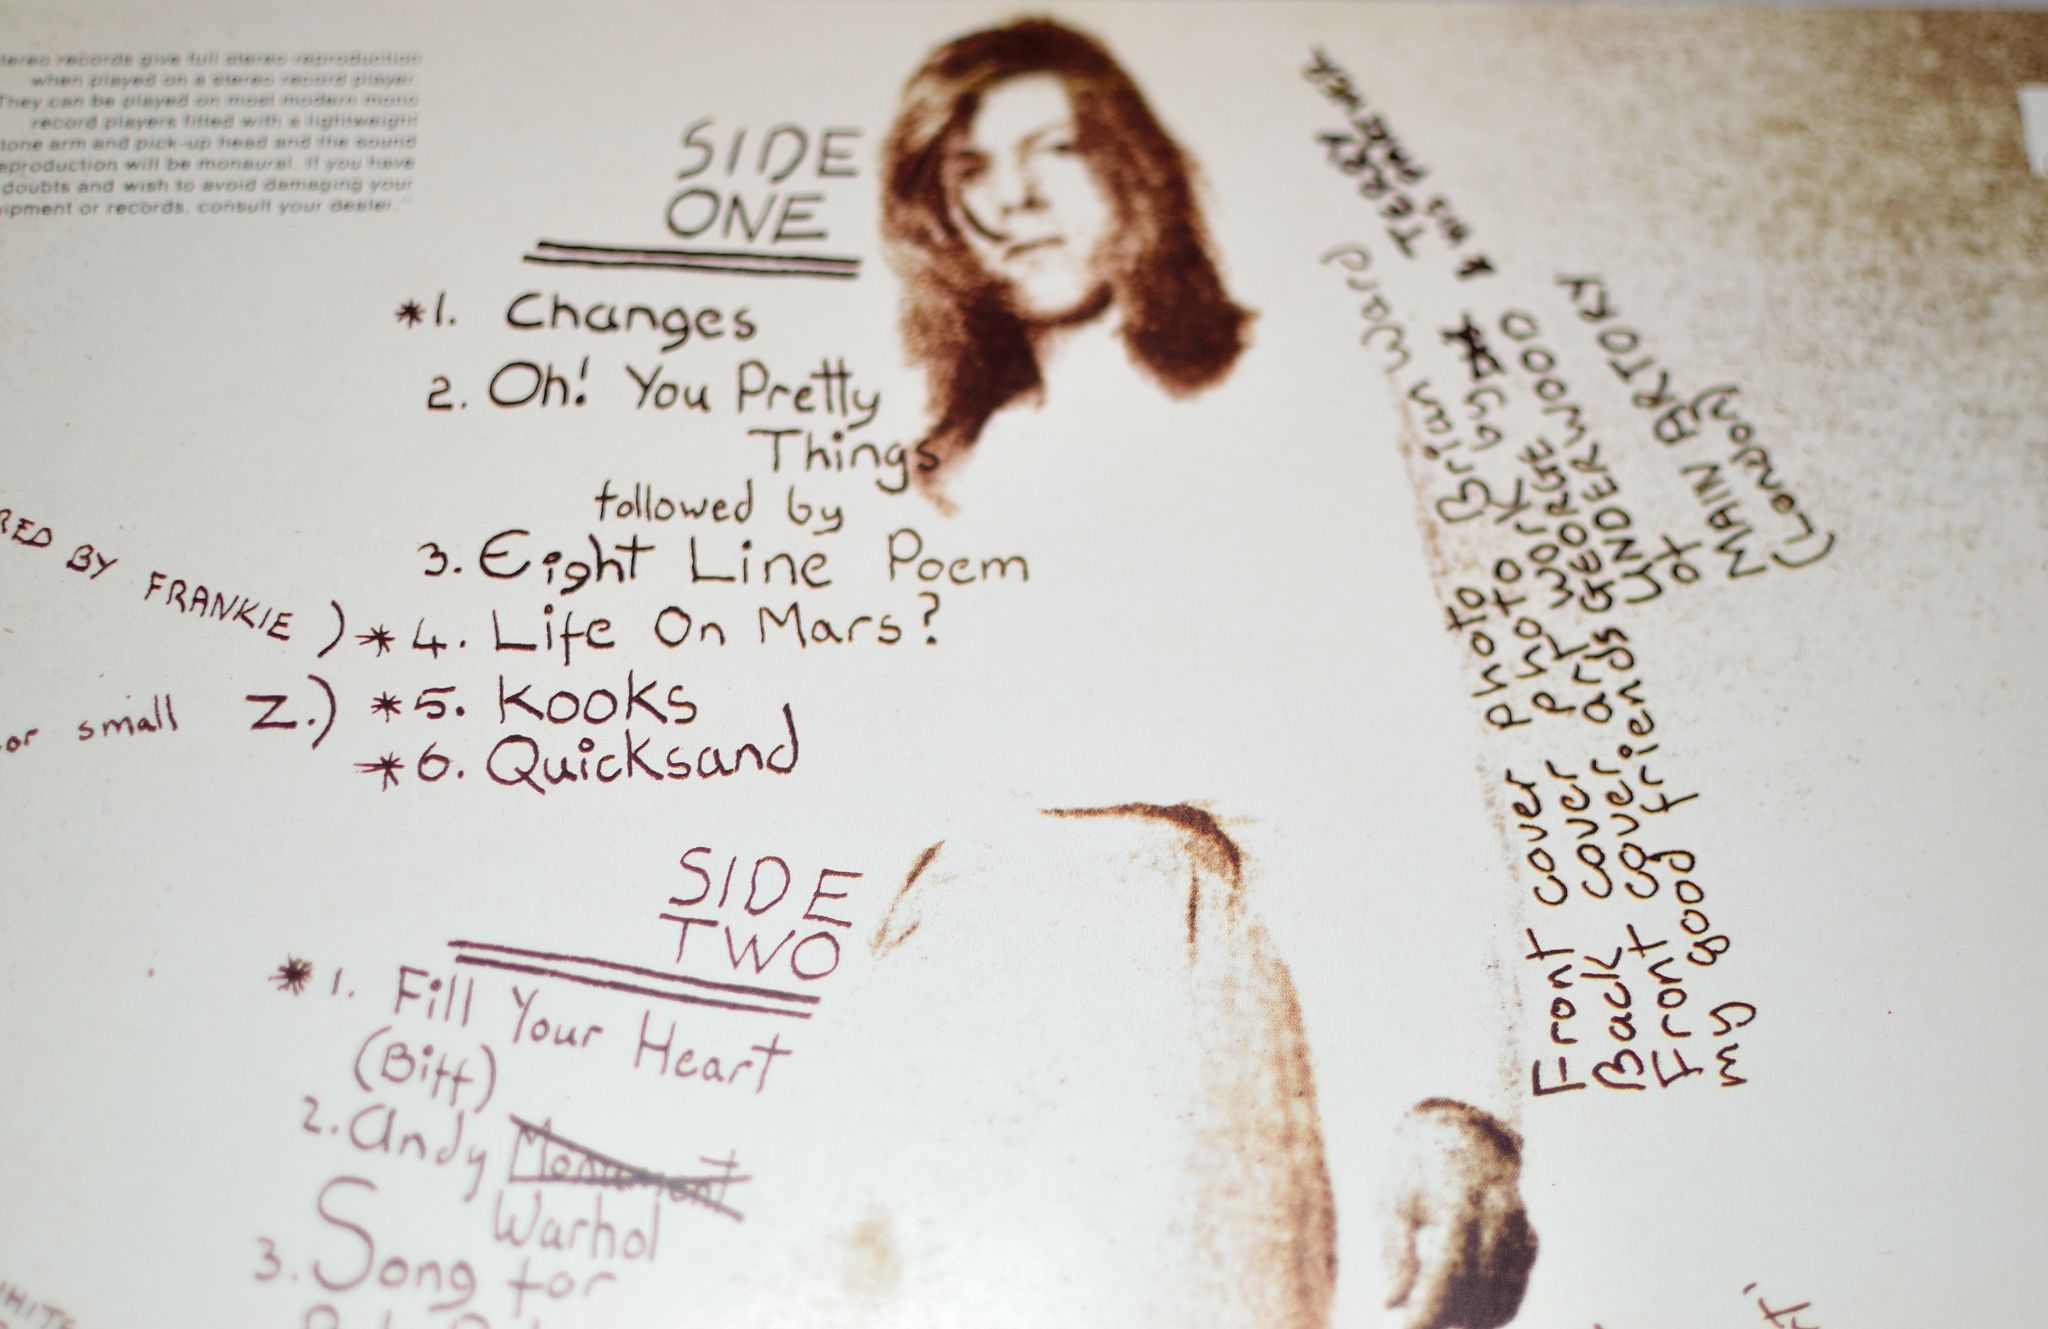 stereo records give full stereo reproduction
when played on a stereo record player.
They can be played on most modern mono
record players fitted with a lightweight
tone arm and pick-up head and the sound
reproduction will be monaural. If you have
doubts and wish to avoid damaging your
equipment or records, consult your dealer."
SIDE
ONE
*1. Changes
2. Oh! You Pretty
Things
followed by
3. Eight Line Poem
RED BY FRANKIE )
*4. Life On Mars?
or small Z.)
*5. Kooks
*6. Quicksand
SIDE
TWO
*1. Fill Your Heart
(Biff)
2. Andy Monument
Warhol
3. Song for
Front cover photo Brian Ward
Back cover photo by
Front cover art work TERRY
& HIS PARTNER
my good friends GEORGE
UNDERWOOD
of
MAIN ARTORY
(London)